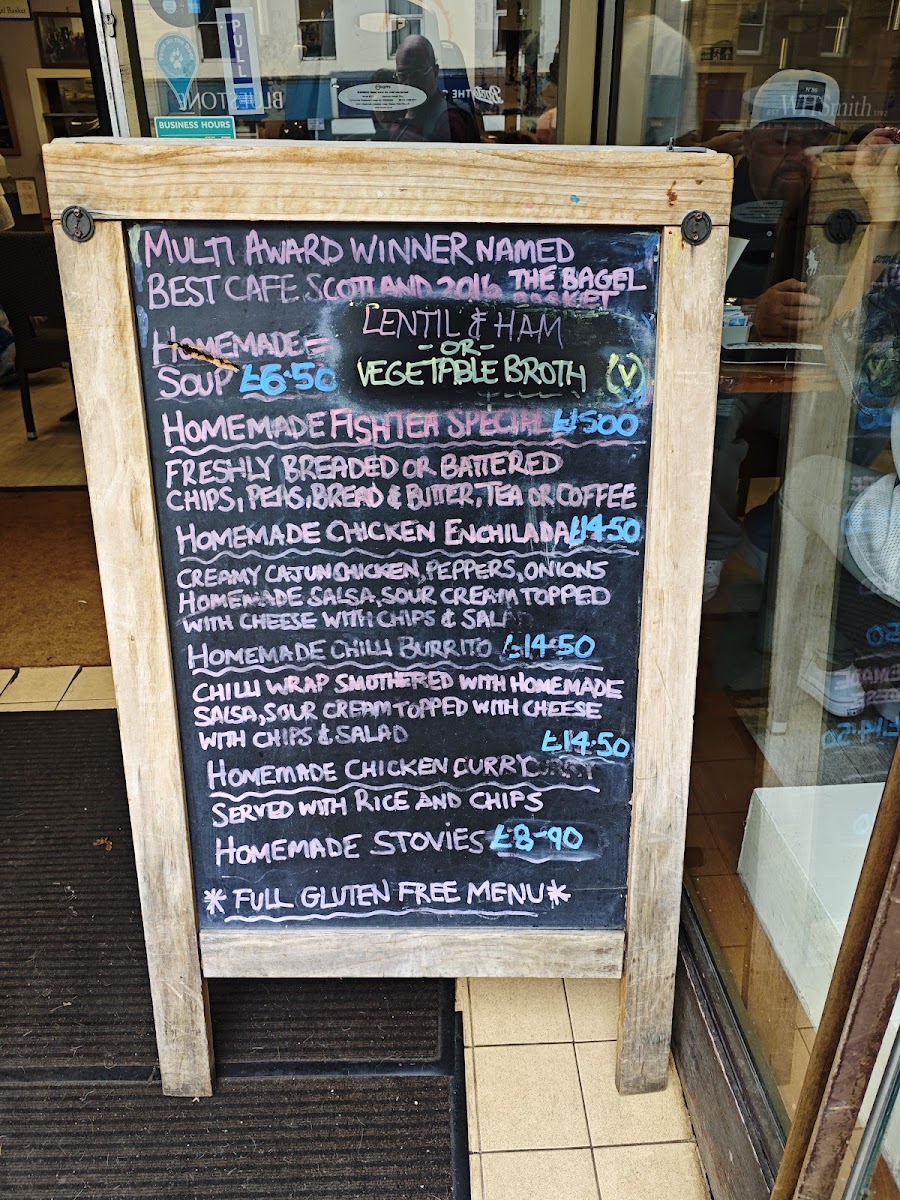 PULL
BLUESTONE
WHSmith
BUSINESS HOURS
MULTI AWARD WINNER NAMED
BEST CAFE SCOTLAND 2016 THE BAGEL
BASKET
HOMEMADE =
SOUP £6.50
LENTIL & HAM
- OR -
VEGETABLE BROTH (V)
HOMEMADE FISHTEA SPECIAL £1500
FRESHLY BREADED OR BATTERED
CHIPS, PEAS, BREAD & BUTTER, TEA OR COFFEE
HOMEMADE CHICKEN ENCHILADA £14.50
CREAMY CAJUN CHICKEN, PEPPERS, ONIONS
HOMEMADE SALSA, SOUR CREAM TOPPED
WITH CHEESE WITH CHIPS & SALAD
HOMEMADE CHILLI BURRITO £14.50
CHILLI WRAP SMOTHERED WITH HOMEMADE
SALSA, SOUR CREAM TOPPED WITH CHEESE
WITH CHIPS & SALAD
£14.50
HOMEMADE CHICKEN CURRY
SERVED WITH RICE AND CHIPS
HOMEMADE STOVIES £8-90
* FULL GLUTEN FREE MENU *